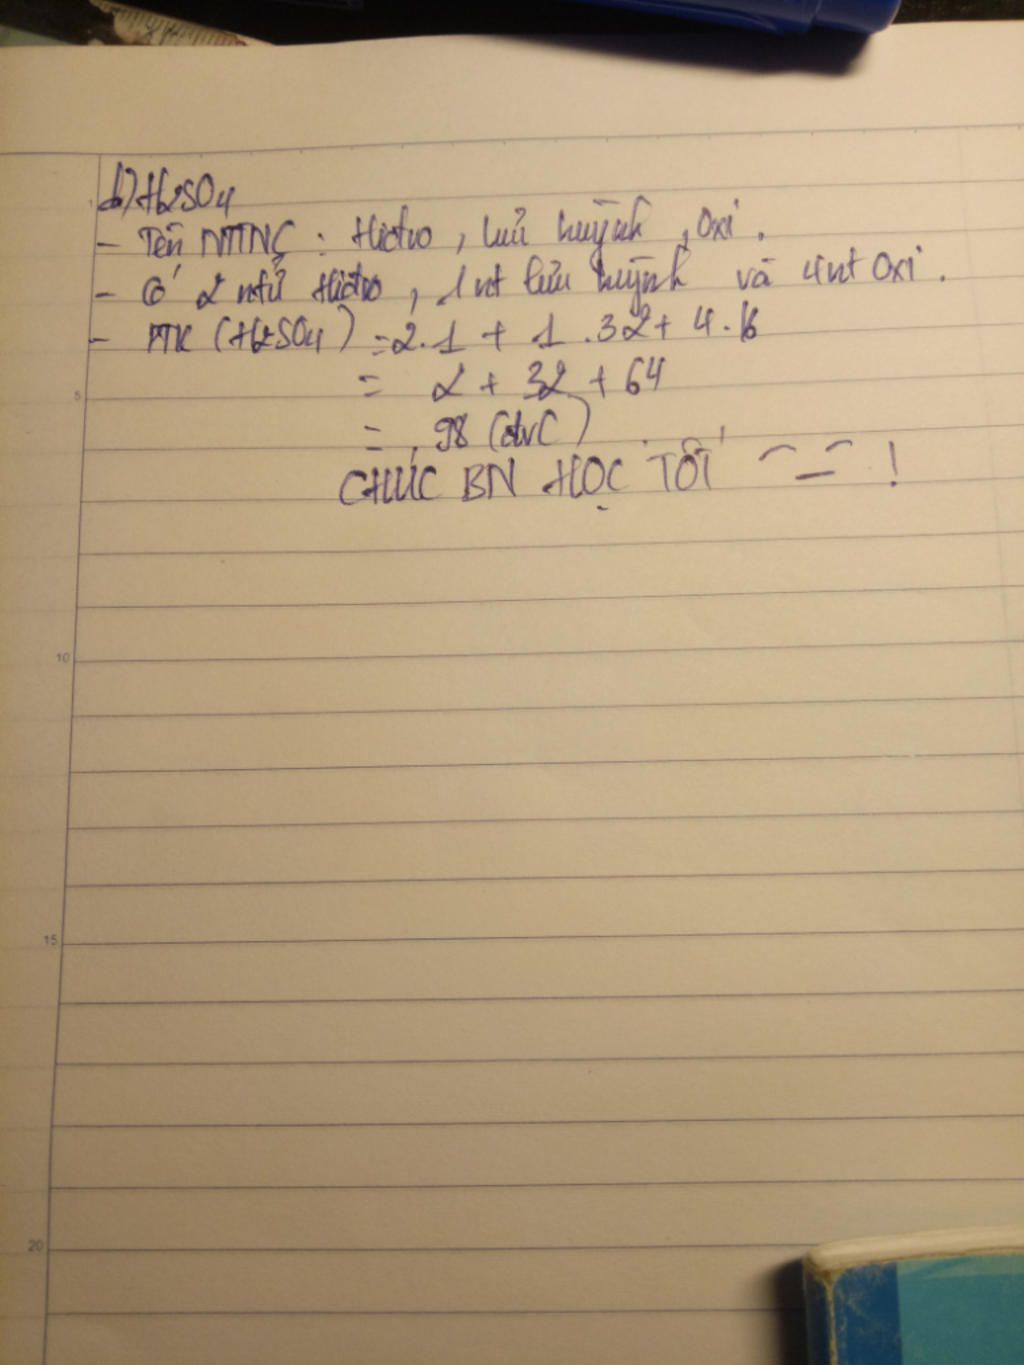 b) H2SO4
- Tên NTHH : Hiđro, lưu huỳnh, Oxi.
- Có 2 ntử Hiđro, 1nt lưu huỳnh và 4nt Oxi.
- PTK (H2SO4) = 2.1 + 1.32 + 4.16
= 2 + 32 + 64
= 98 (đvC)
CHÚC BN HỌC TỐT ^_^ !
5
10
15
20